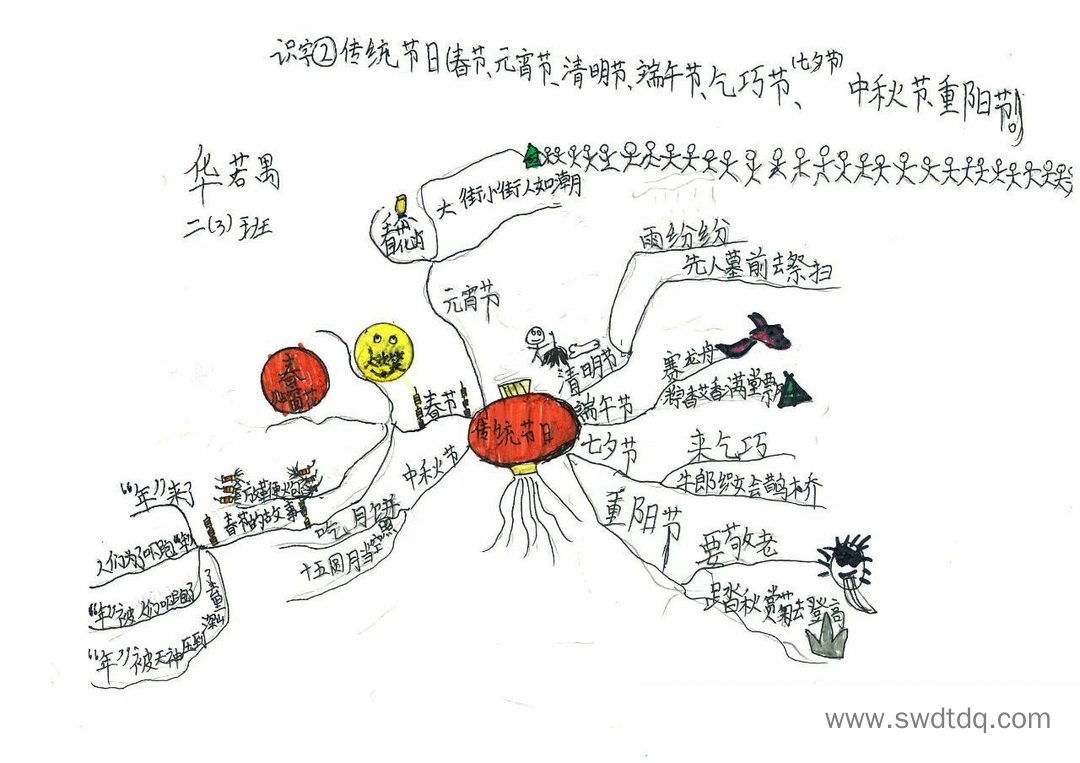 识字②传统节日(春节、元宵节、清明节、端午节、乞巧节、(七夕节)
中秋节、重阳节)。
华若愚
二(3)班
大街小街人如潮
元宵节
雨纷纷
先人墓前去祭扫
清明节
赛龙舟
粽香艾香满堂飘
端午节
来乞巧
牛郎织女会鹊桥
七夕节
重阳节
要敬老
踏秋赏菊去登高
传统节日
春节
春
中秋节
吃月饼
十五圆月当空照
春节的故事
"年"来了
人们为了吓跑"年"
"年"被人们吓跑了
"年"被天神压到
了着重
深山
www.swdtdq.com